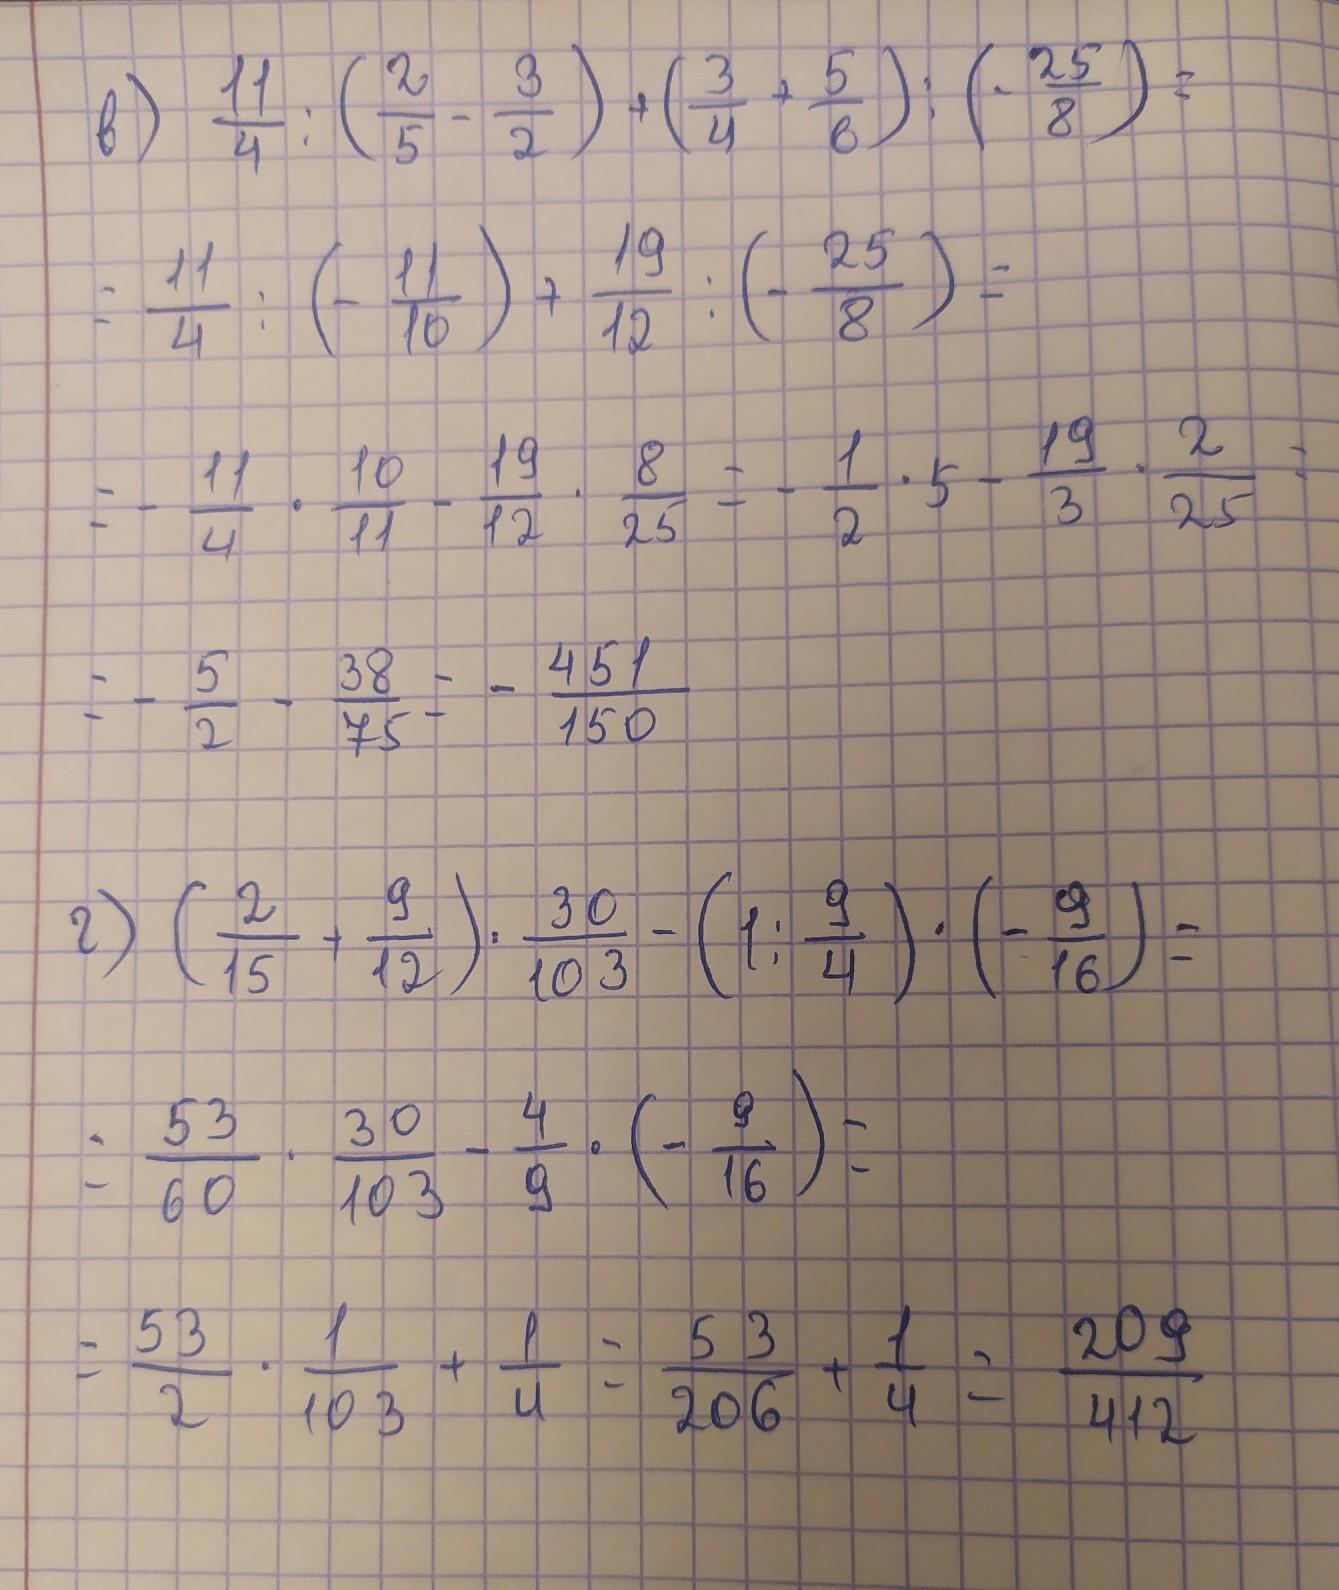 в) 11/4 : (2/5 - 3/2) + (3/4 + 5/6) : (- 25/8) =
= 11/4 : (- 11/10) + 19/12 : (- 25/8) =
= - 11/4 · 10/11 - 19/12 · 8/25 = - 1/2 · 5 - 19/3 · 2/25 =
= - 5/2 - 38/75 = - 451/150
г) (2/15 + 9/12) · 30/103 - (1 : 9/4) · (- 9/16) =
= 53/60 · 30/103 - 4/9 · (- 9/16) =
= 53/2 · 1/103 + 1/4 = 53/206 + 1/4 = 209/412